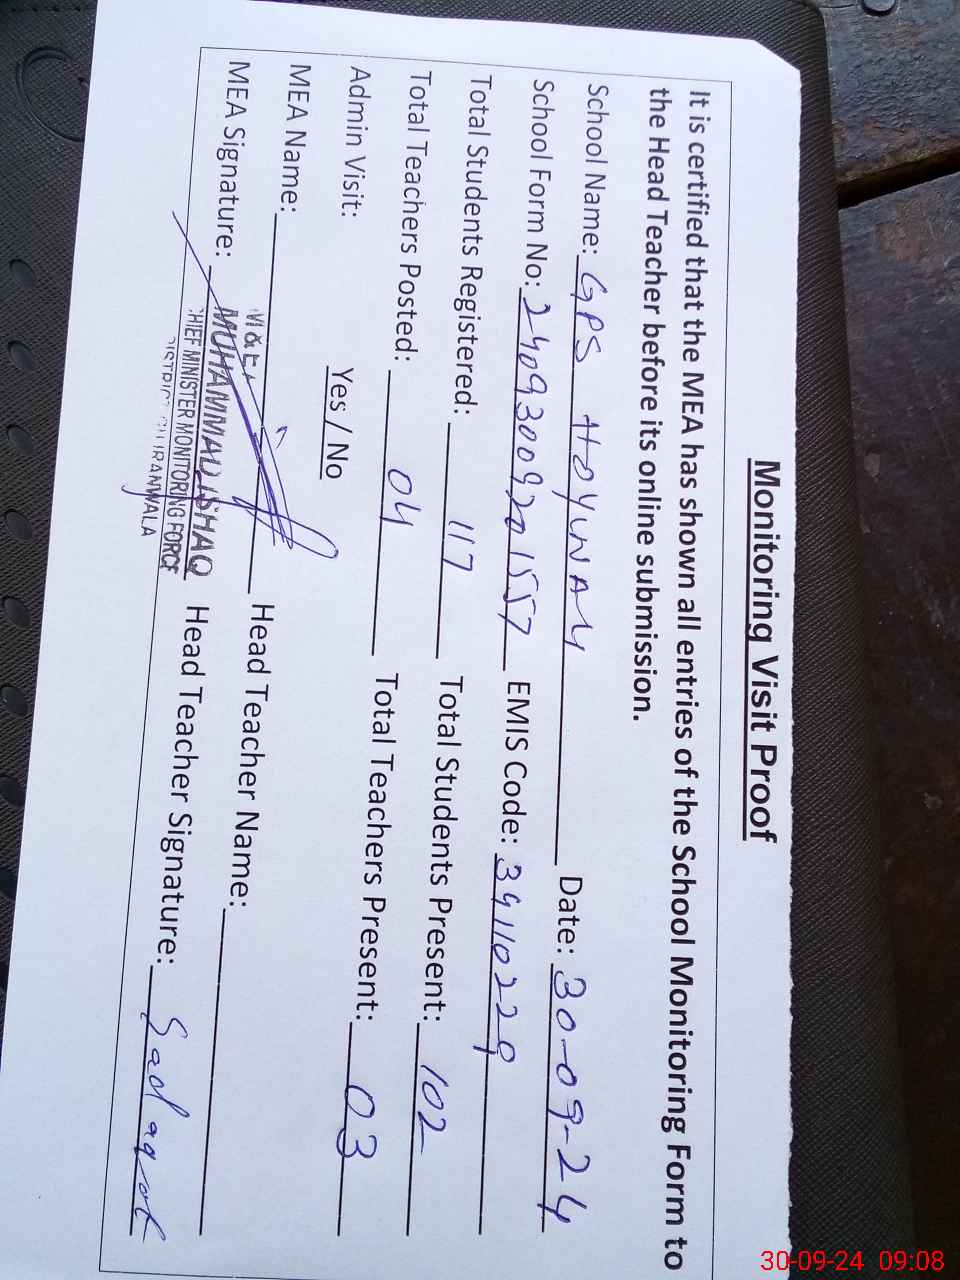 Monitoring Visit Proof
It is certified that the MEA has shown all entries of the School Monitoring Form to
the Head Teacher before its online submission.
School Name: GPS Date: 30-09-24
School Form No: EMIS Code:
Total Students Registered: 117 Total Students Present: 102
Total Teachers Posted: 04 Total Teachers Present: 03
Admin Visit: Yes / No
MEA Name: Head Teacher Name:
MEA Signature: Head Teacher Signature: Sadaqat
MUHAMMAD ISHAQ
CHIEF MINISTER MONITORING FORCE
30-09-24 09:08